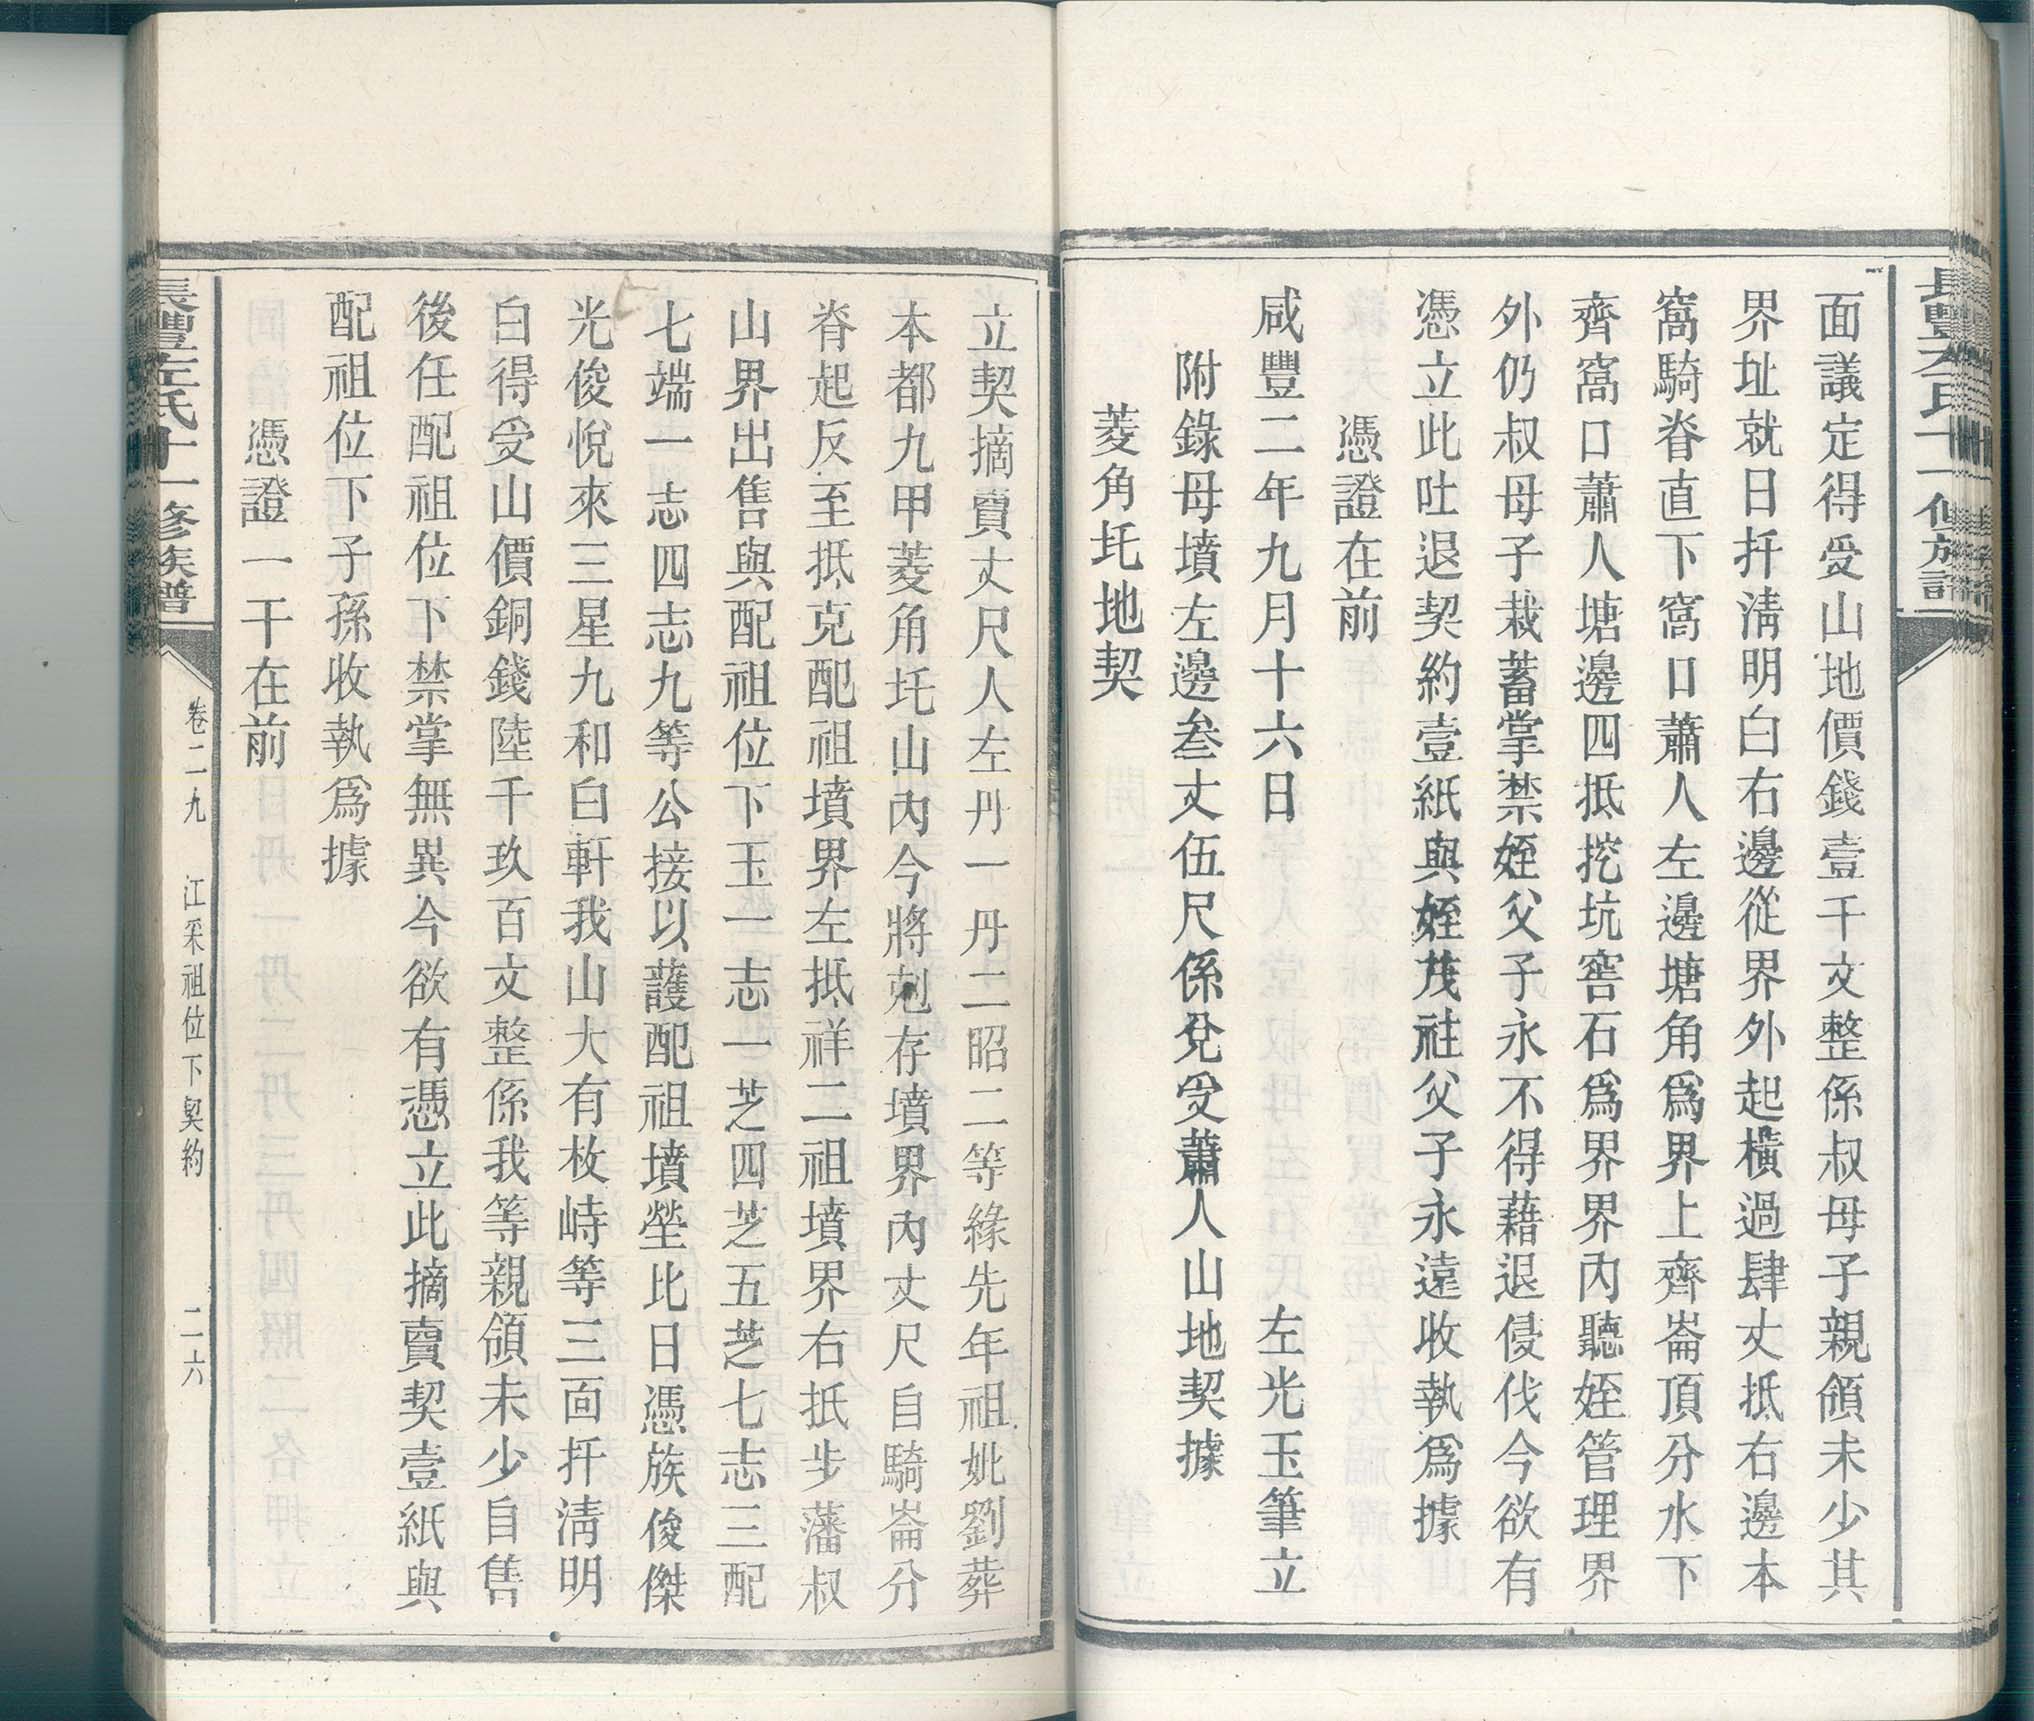 面議定得受山地價錢壹千文整係叔母子親領未少其
界址就日扦淸明白右邊從界外起橫過肆丈抵右邊本
窩騎脊直下窩口蕭人左邊塘角爲界上齊崙頂分水下
齊窩口蕭人塘邊四抵挖坑窖石爲界界內聽姪管理界
外仍叔母子栽蓄掌禁姪父子永不得藉退侵伐今欲有
憑立此吐退契約壹紙與姪茂社父子永遠收執爲據
憑證在前
咸豐二年九月十六日　左光玉筆立
附錄母墳左邊叁丈伍尺係兌受蕭人山地契據
菱角圫地契
立契摘賣丈尺人左丹一丹二昭二等緣先年祖妣劉葬
本都九甲菱角圫山內今將剋存墳界內丈尺自騎崙分
脊起反至抵克配祖墳界左抵祥二祖墳界右抵步藩叔
山界出售與配祖位下玉一志一芝四芝五芝七志三配
七端一志四志九等公接以護配祖墳塋比日憑族俊傑
光俊悅來三星九和白軒我山大有枚峙等三面扦淸明
白得受山價銅錢陸千玖百文整係我等親領未少自售
後任配祖位下禁掌無異今欲有憑立此摘賣契壹紙與
配祖位下子孫收執爲據
憑證一干在前
長豐左氏十一修族譜
卷二九　江采祖位下契約　二六